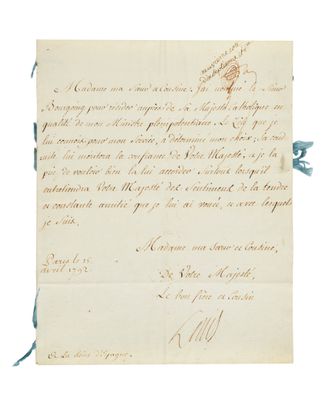 Madame ma Sœur et Cousine, j'ai nommé le Sieur
Bourgoing pour résider auprès de Sa Majesté Catholique en
qualité de mon Ministre plénipotentiaire. Le Zèle que je
lui connois pour mon Service, a déterminé mon choix. Sa cond
uite lui méritera la confiance de Votre Majesté, et je la
prie de vouloir bien la lui accorder surtout lorsqu'il
entretiendra Votre Majesté des Sentimens de la tendre
et constante amitié que je lui ai vouée, et avec lesquels
je Suis,
Madame ma Sœur et Cousine,
Paris le 15
avril 1792
De Votre Majesté,
Le bon frère et Cousin
Louis
à La Reine d'Espagne